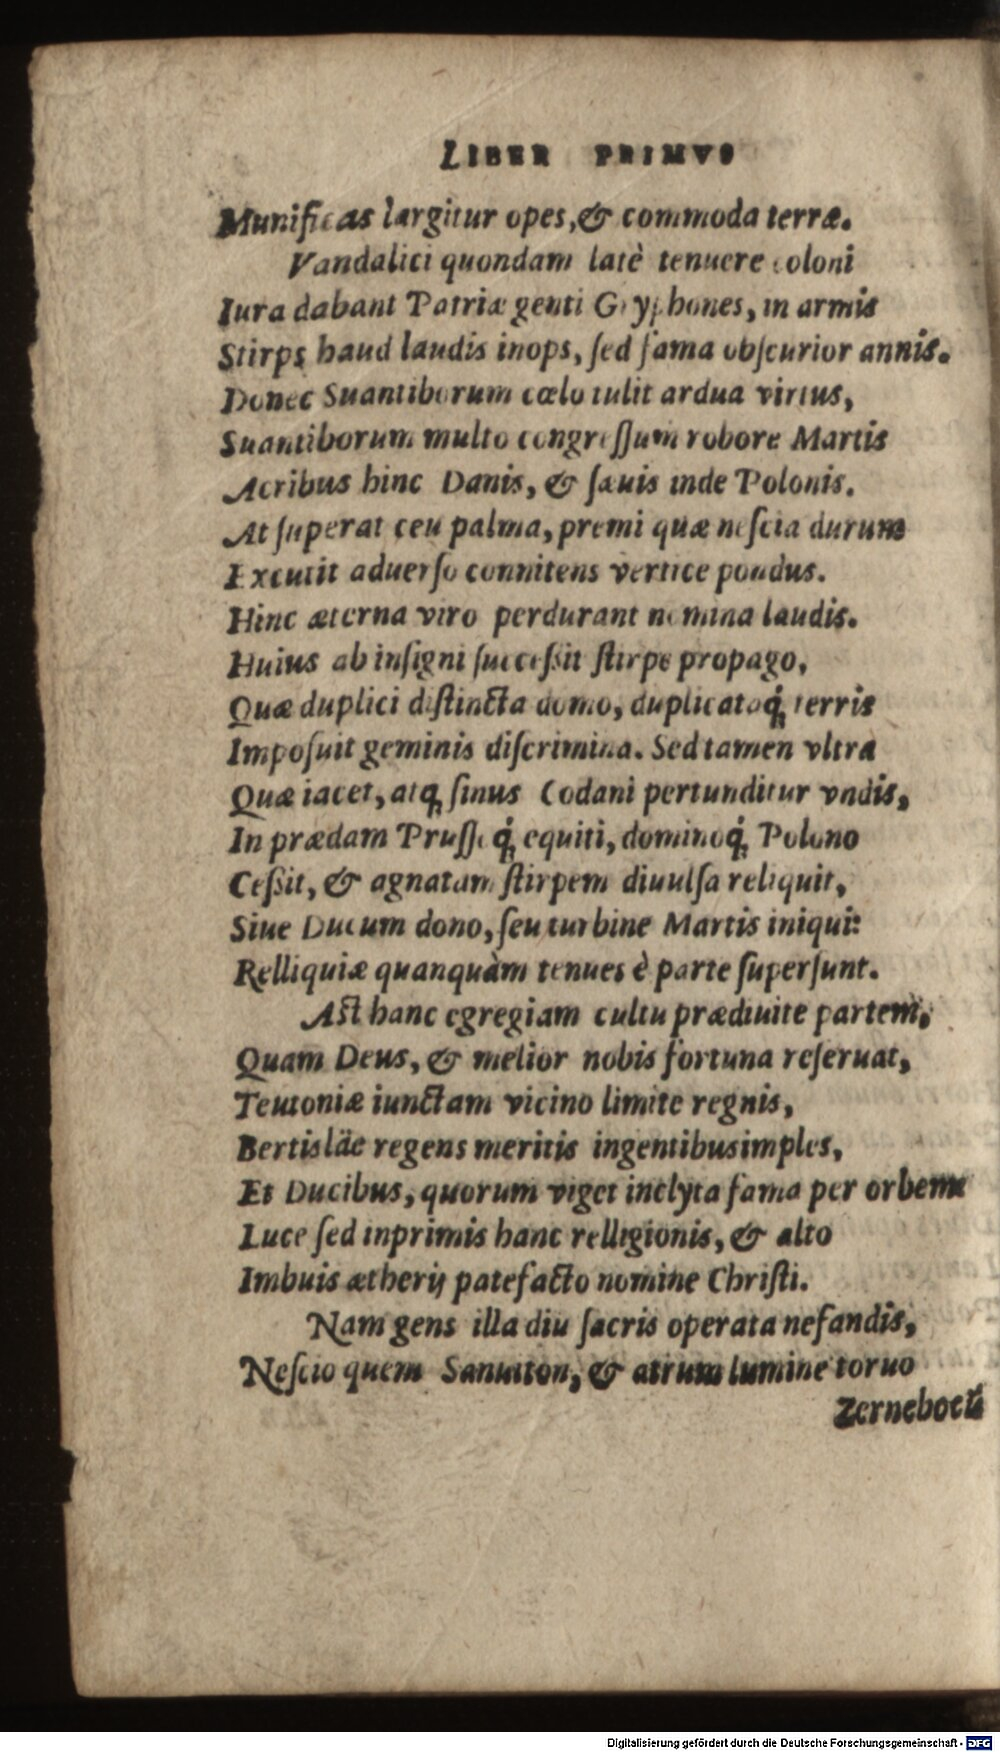 LIBER PRIMVS
Munificas largitur opes, & commoda terræ.
Vandalici quondam latè tenuere coloni
Iura dabant Patriæ genti Gryphones, in armis
Stirps haud laudis inops, ſed fama obſcurior annis.
Donec Suantiborum cœlo tulit ardua virtus,
Suantiborum multo congreſſum robore Martis
Acribus hinc Danis, & ſæuis inde Polonis.
At ſuperat ceu palma, premi quæ neſcia durum
Excutit aduerſo connitens vertice pondus.
Hinc æterna viro perdurant nomina laudis.
Huius ab inſigni ſucceſsit ſtirpe propago,
Quæ duplici diſtincta domo, duplicataq́; terris
Impoſuit geminis diſcrimina. Sed tamen vltra
Quæ iacet, atq; ſinus Codani pertunditur vndis,
In prædam Pruſſoq́; equiti, dominoq́; Polono
Ceſsit, & agnatam ſtirpem diuulſa reliquit,
Siue Ducum dono, ſeu turbine Martis iniqui:
Relliquiæ quanquàm tenues è parte ſuperſunt.
Aſt hanc egregiam cultu prædiuite partem,
Quam Deus, & melior nobis fortuna reſeruat,
Teutoniæ iunctam vicino limite regnis,
Bertisläe regens meritis ingentibus imples,
Et Ducibus, quorum viget inclyta fama per orbem
Luce ſed inprimis hanc relligionis, & alto
Imbuis ætherij patefacto nomine Chriſti.
Nam gens illa diu ſacris operata nefandis,
Neſcio quem Sanuiton, & atrum lumine toruo
Zernebocũ
Digitalisierung gefördert durch die Deutsche Forschungsgemeinschaft - DFG